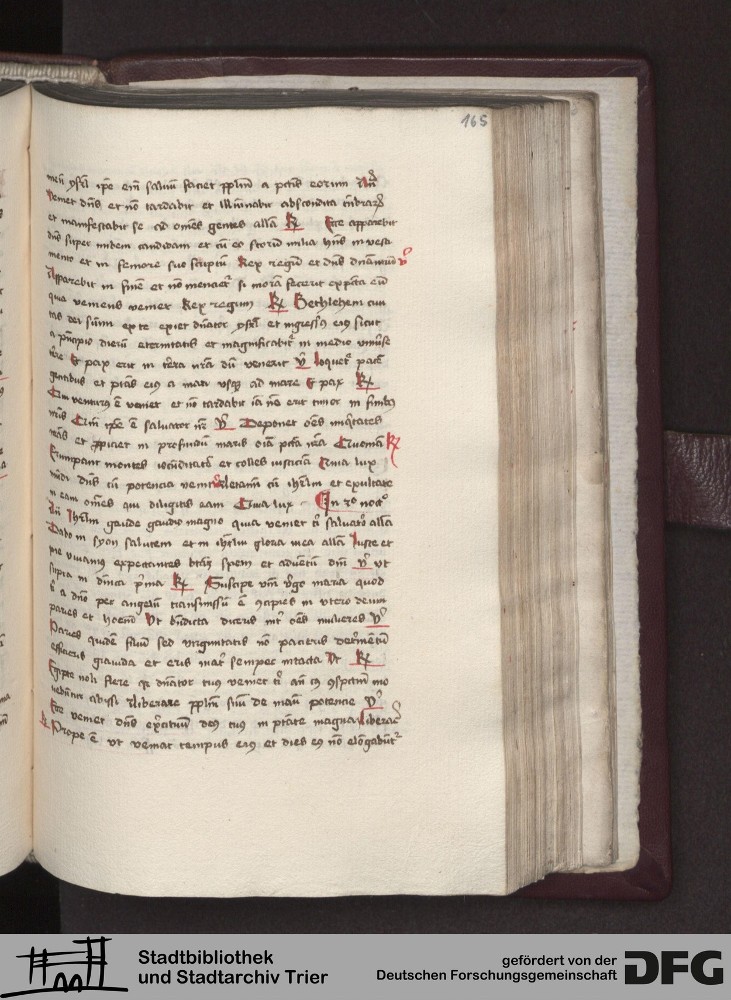 165
meu ysrl ipe em saluu faciet pplm a pctis eorum An
Veniet dns et no tardabit et illuminabit abscondita tnbrarum
et manifestabit se ad omes gentes alla R Ecce apparebit
dns super nubem candidam et cu eo sctorum milia hns in vesti
mento et in femore suo scriptu Rex regu et dns dnantium V
Apparebit in fine et no mencietur si mora fecerit expecta eu
quia veniens veniet Rex regum R Bethlehem ciui
tas dei sumi ex te exiet dnator ysrl et ingressus eius sicut
a principio dieru eternitatis et magnificabitur in medio uniuse
tre Et pax erit in terra nra du venerit V Loquetur pace
gentibus et ptas eius a mari usq ad mare Et pax R
Qui venturus e veniet et no tardabit ia no erit timor in finibus
nris Qm ipe e saluator nr V Deponet oes iniqtates
nras et proiciet in profundum maris oia pcta nra Quoniam R
Erumpant montes iocunditate et colles iusticia Quia lux
mundi dns cu potencia venit V Letamini cu ihrlm et exultate
in eam omes qui diligitis eam Quia lux In 3o nocto
An Ihrlm gaude gaudio magno quia veniet ti saluator alla
Dabo in syon salutem et in ihrlm gloria mea alla Iuste et
pie viuamus expectantes btam spem et aduentu dni V ut
supra in dnica prima R Suscipe verbum virgo maria quod
ti a dno per angelu transmissu e concipies in utero deum
paries et hoiem Ut bndicta dicaris inter oes mulieres V
Paries quide filiu sed virginitatis no pacieris detrimentu
efficieris grauida et eris mater semper intacta Ut R
Egipte noli flere qr dnator tuus veniet ti an cuius conspectum mo
uebuntur abissi Liberare pplm suu de manu potencie V
Ecce veniet dns exercituum deus tuus in ptate magna Liberare
R Prope e ut veniat tempus eius et dies eius no elongabuntur
Stadtbibliothek
und Stadtarchiv Trier
gefördert von der
Deutschen Forschungsgemeinschaft
DFG